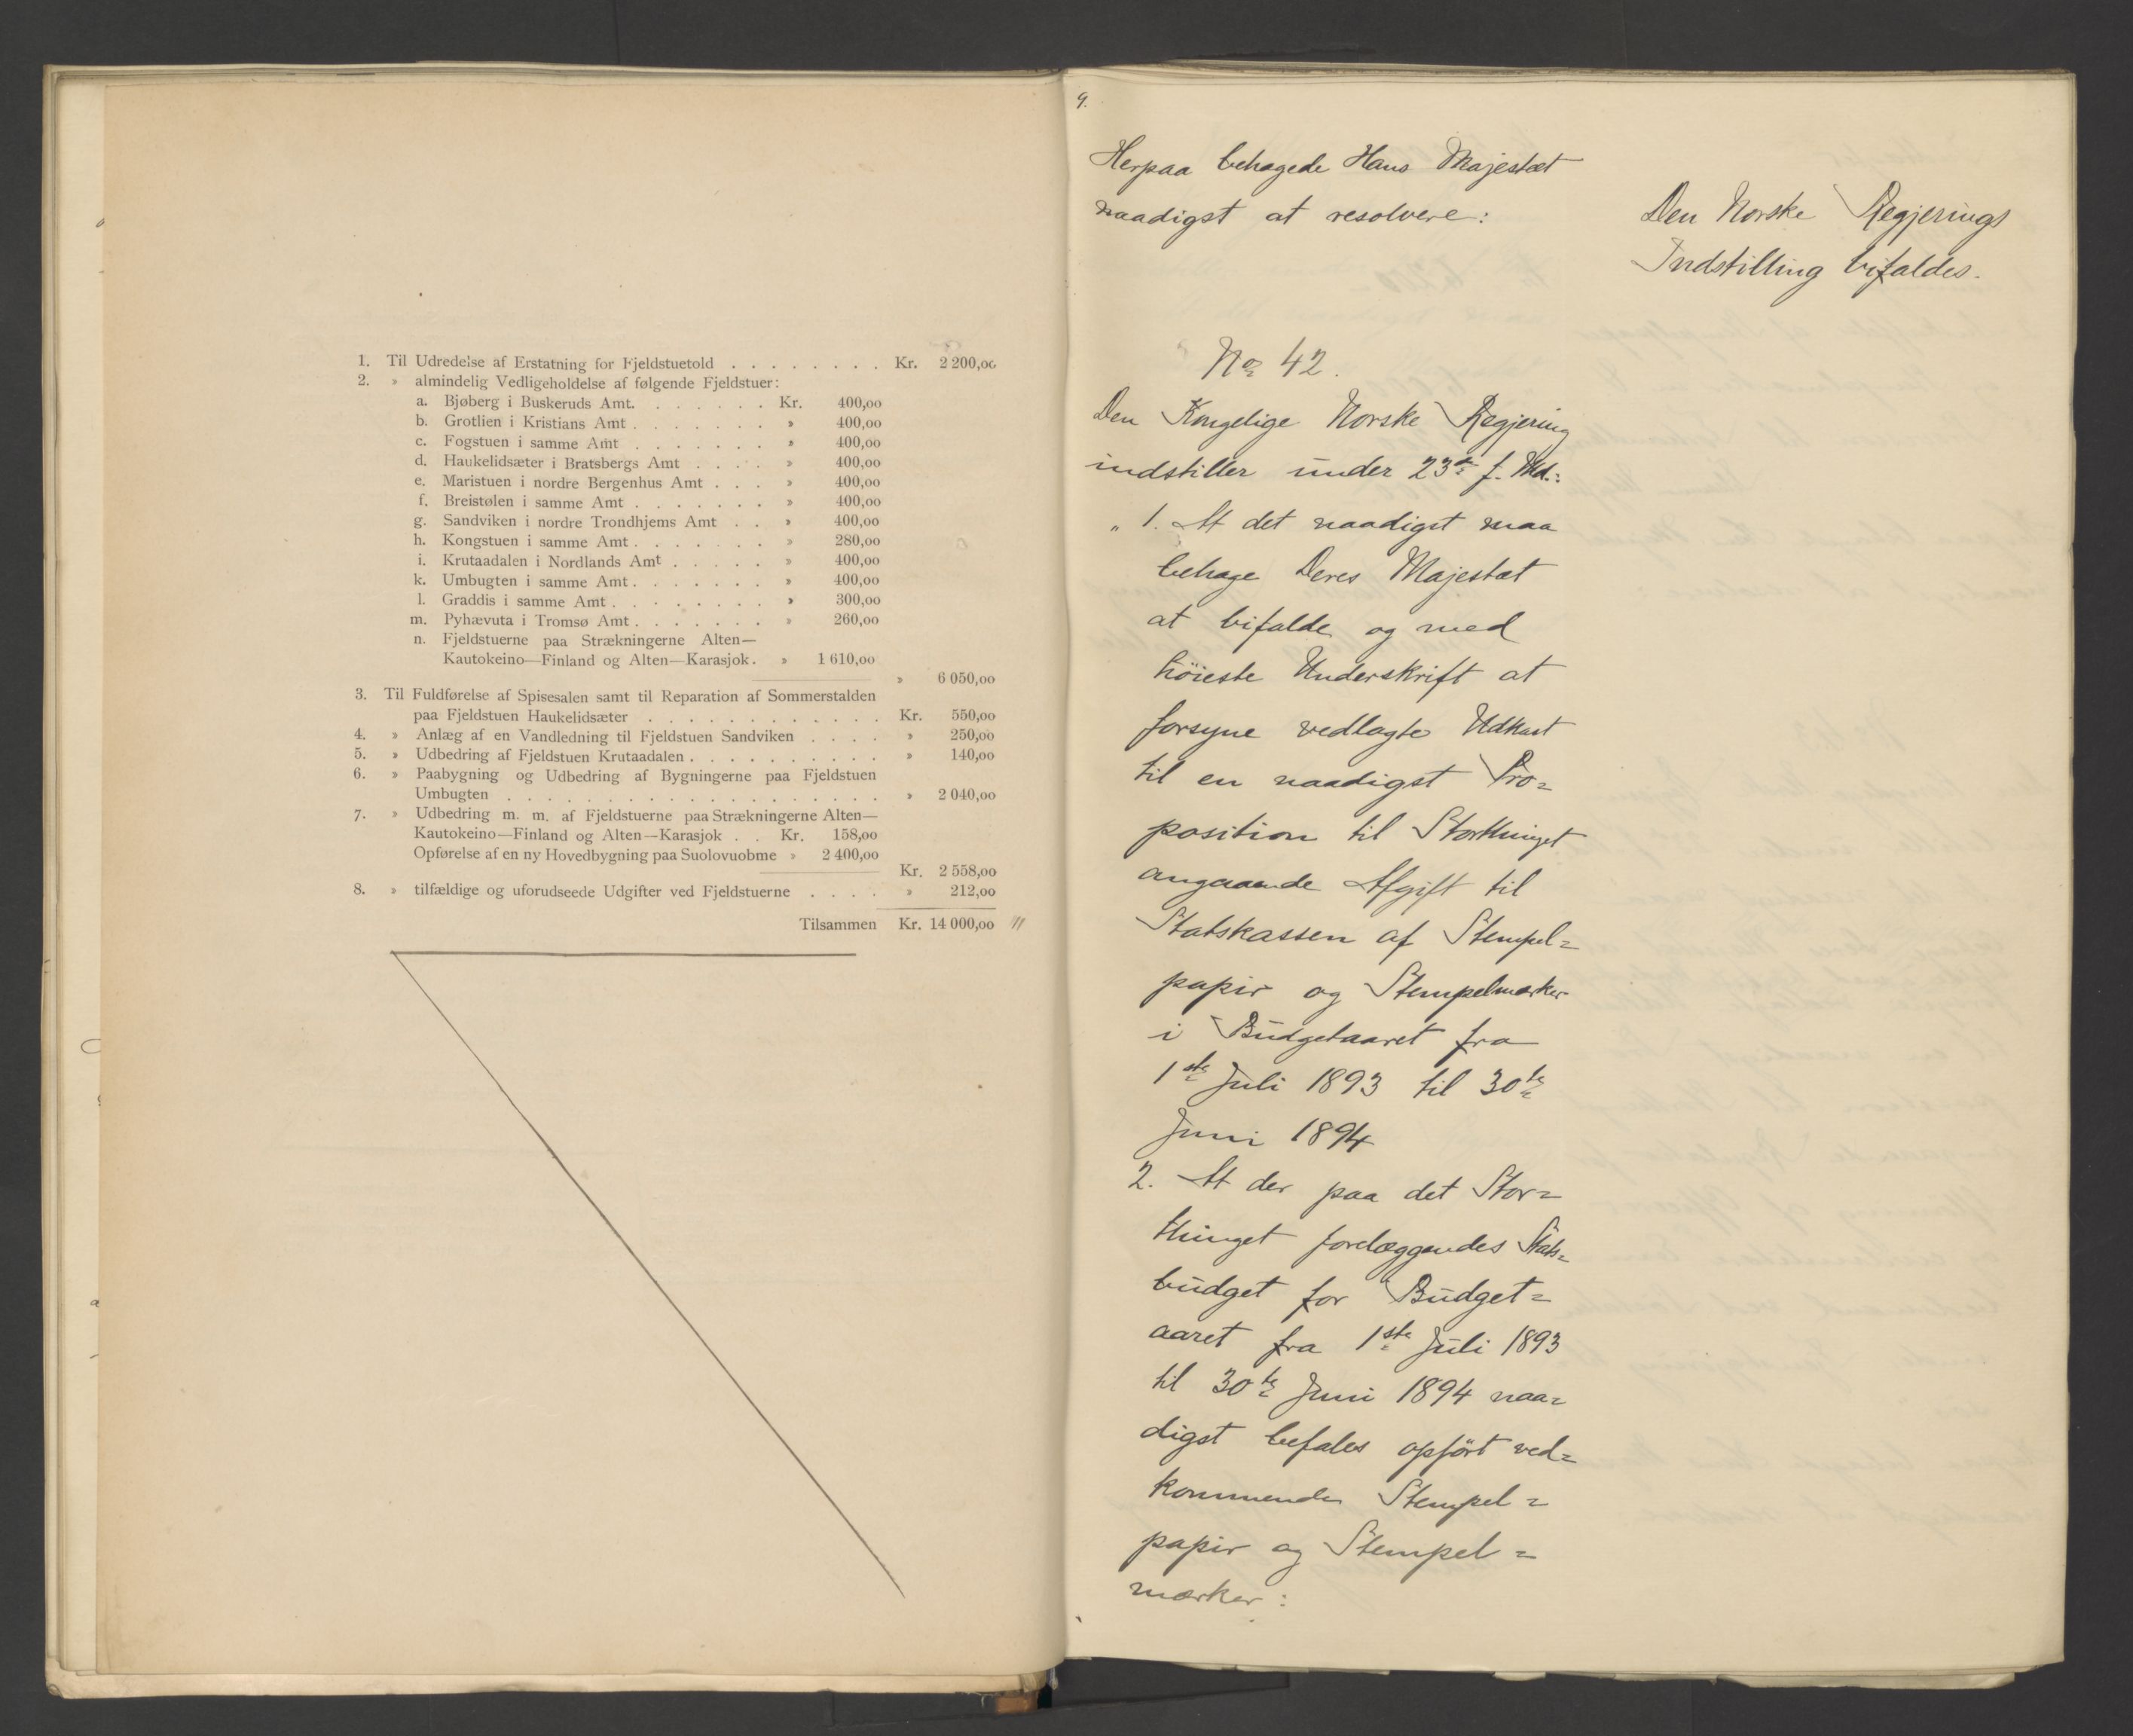 1. Til Udredelse af Erstatning for Fjeldstuetold . . . . . . . . Kr. 2 200,00
2. » almindelig Vedligeholdelse af følgende Fjeldstuer:
a. Bjøberg i Buskeruds Amt. . . . . . . Kr. 400,00
b. Grotlien i Kristians Amt . . . . . . . » 400,00
c. Fogstuen i samme Amt . . . . . . . » 400,00
d. Haukelidsæter i Bratsbergs Amt . . . . » 400,00
e. Maristuen i nordre Bergenhus Amt . . . » 400,00
f. Breistølen i samme Amt . . . . . . . » 400,00
g. Sandviken i nordre Trondhjems Amt . . » 400,00
h. Kongstuen i samme Amt . . . . . . . » 280,00
i. Krutaadalen i Nordlands Amt . . . . . » 400,00
k. Umbugten i samme Amt . . . . . . . » 400,00
l. Graddis i samme Amt . . . . . . . . » 300,00
m. Pyhævuta i Tromsø Amt . . . . . . . » 260,00
n. Fjeldstuerne paa Strækningerne Alten—
Kautokeino—Finland og Alten—Karasjok . » 1 610,00
» 6 050,00
3. Til Fuldførelse af Spisesalen samt til Reparation af Sommerstalden
paa Fjeldstuen Haukelidsæter . . . . . . . . . . . . Kr. 550,00
4. » Anlæg af en Vandledning til Fjeldstuen Sandviken . . . . » 250,00
5. » Udbedring af Fjeldstuen Krutaadalen . . . . . . . . . . » 140,00
6. » Paabygning og Udbedring af Bygningerne paa Fjeldstuen
Umbugten . . . . . . . . . . . . . . . . . . » 2 040,00
7. » Udbedring m. m. af Fjeldstuerne paa Strækningerne Alten—
Kautokeino—Finland og Alten—Karasjok . . Kr. 158,00
Opførelse af en ny Hovedbygning paa Suolovuobme » 2 400,00
Kr. 2 558,00
8. » tilfældige og uforudseede Udgifter ved Fjeldstuerne . . . . » 212,00
Tilsammen Kr. 14 000,00 "
9.
Herpaa behagede Hans Majestæt
naadigst at resolvere:
Den Norske Regjerings
Indstilling bifaldes.
No 42.
Den Kongelige Norske Regjering
indstiller under 23de f. Md.:
„ 1. At det naadigst maa
behage Deres Majestæt
at bifalde og med
høieste Underskrift at
forsyne vedlagte Udkast
til en naadigst Pro=
position til Storthinget
angaaende Afgift til
Statskassen af Stempel=
papir og Stempelmærker
i Budgetaaret fra
1ste Juli 1893 til 30te
Juni 1894
2. At der paa det Stor=
thinget forelæggendes Stats=
budget for Budget=
aaret fra 1ste Juli 1893
til 30te Juni 1894 naa=
digst befales opført ved=
kommende Stempel=
papir og Stempel=
mærker: